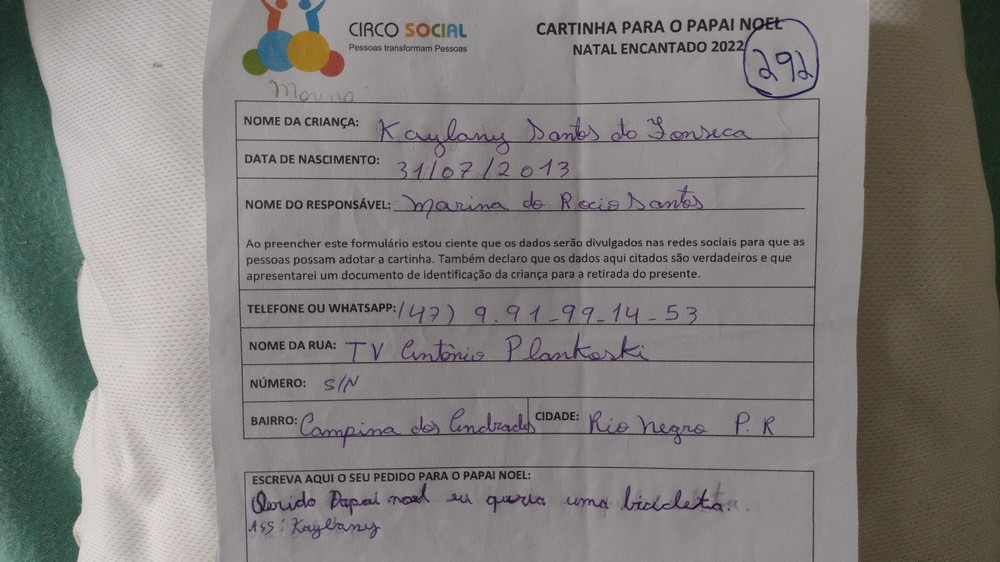 CIRCO SOCIAL
Pessoas transformam Pessoas
CARTINHA PARA O PAPAI NOEL
NATAL ENCANTADO 2022
292
NOME DA CRIANÇA: Kaylany Santos da Fonseca
DATA DE NASCIMENTO: 31/07/2013
NOME DO RESPONSÁVEL: Marina do Rocio Santos
Ao preencher este formulário estou ciente que os dados serão divulgados nas redes sociais para que as
pessoas possam adotar a cartinha. Também declaro que os dados aqui citados são verdadeiros e que
apresentarei um documento de identificação da criança para a retirada do presente.
TELEFONE OU WHATSAPP: (47) 9.91-99-14-53
NOME DA RUA: TV Antônio Plankoski
NÚMERO: S/N
BAIRRO: Campina dos Andrades CIDADE: Rio Negro P.R
ESCREVA AQUI O SEU PEDIDO PARA O PAPAI NOEL:
Querido Papai noel eu queria uma bicicleta.
Ass: Kaylany